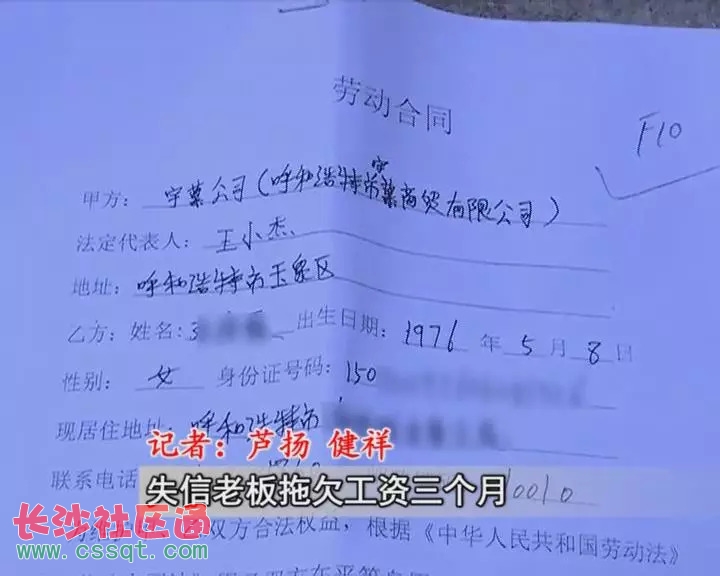 劳动合同
F10
甲方：宇葉公司（呼和浩特市宇葉商贸有限公司）
法定代表人：王小杰
地址：呼和浩特市玉泉区
乙方：姓名： 出生日期：1976年5月8日
性别：女 身份证号码：150
现居住地址：呼和浩特市
记者：芦扬 健祥
联系电话 10010
失信老板拖欠工资三个月
长沙社区通
双方合法权益，根据《中华人民共和国劳动法》
www.cssqt.com